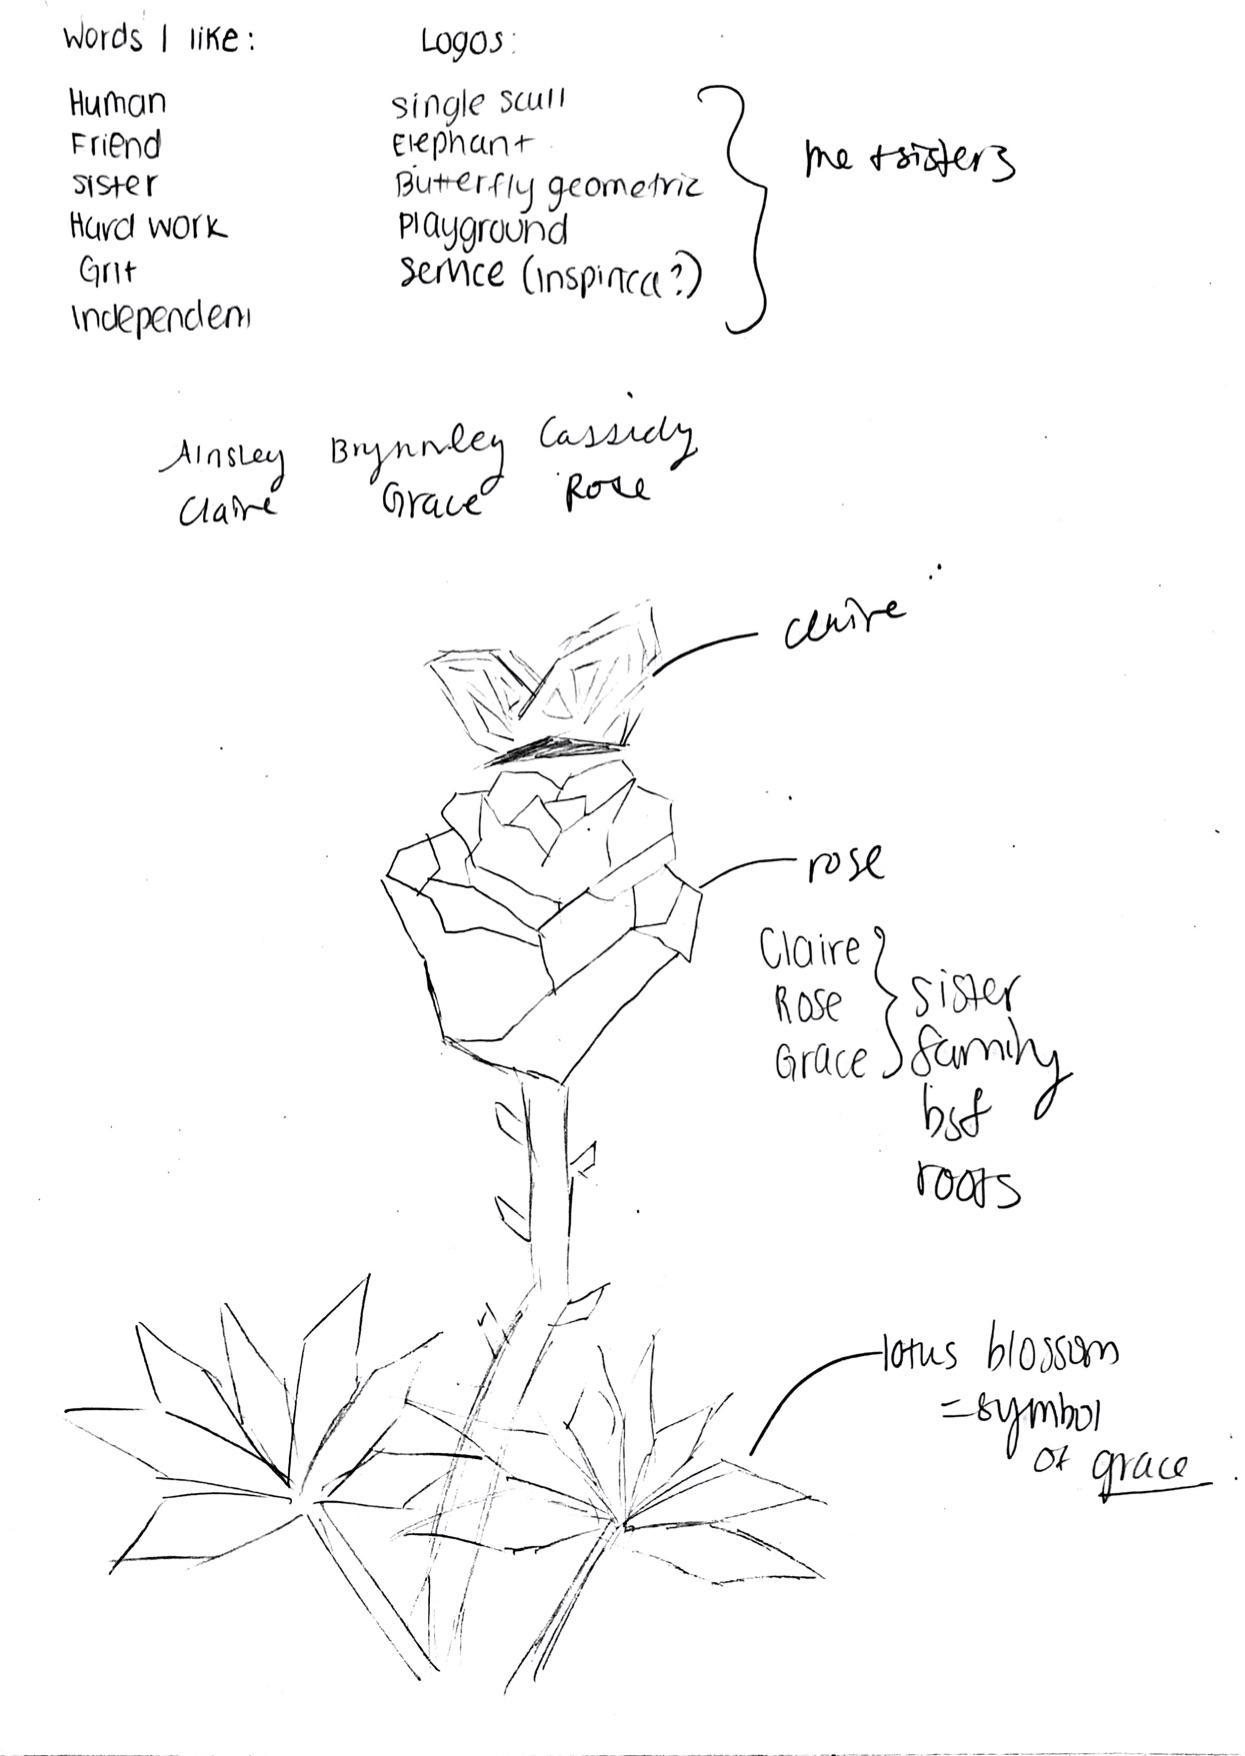 Words I like:
Human
Friend
sister
Hard work
Grit
Independent
Logos:
single scull
Elephant
Butterfly geometric
Playground
service
me + sisters
Ainsley Brynnley Cassidy
Claire Grace Rose
claire
rose
Claire
Rose
Grace
sister
family
bsf
roots
lotus blossom
=symbol
of grace